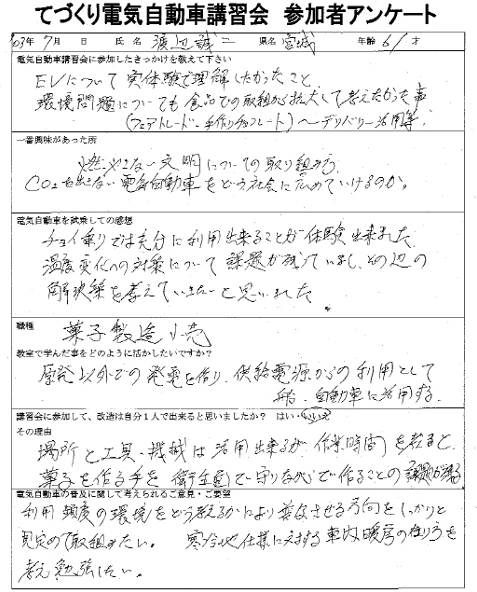 てづくり電気自動車講習会 参加者アンケート
'03年 7月 日 氏名 渡辺誠二 県名 宮城 年齢 61 才
電気自動車講習会に参加したきっかけを教えて下さい
EVについて実体験で理解したかったこと
環境問題についても食品での取組から拡大して考えたかった事
(フェアトレード・手作りチョコレート)〜デリバリー活用等.
一番興味があった所
燃やさない文明についての取り組み方.
CO2を出さない電気自動車をどう社会に広めていけるのか.
電気自動車を試乗しての感想
チョイ乗りでは充分に利用出来ることが体験出来ました.
温度変化への対策について課題が残っていまし、その辺の
解決策を考えていきたいと思いました
職種 菓子製造小売
教室で学んだ事をどのように活かしたいですか?
原発以外での発電を作り.供給電源からの利用として
船.自動車に活用する.
講習会に参加して、改造は自分1人で出来ると思いましたか? はい・いいえ
その理由
場所と工具.機械は活用出来るが.作業時間を考えると、
菓子を作る手を衛生面で守りながらで作ることの課題が残る
電気自動車の普及に関して考えられるご意見・ご要望
利用頻度の環境をどう考えるかにより普及させる方向をしっかりと
見定めて取組みたい。 寒冷地仕様に対する車内暖房の在り方を
考え勉強したい.